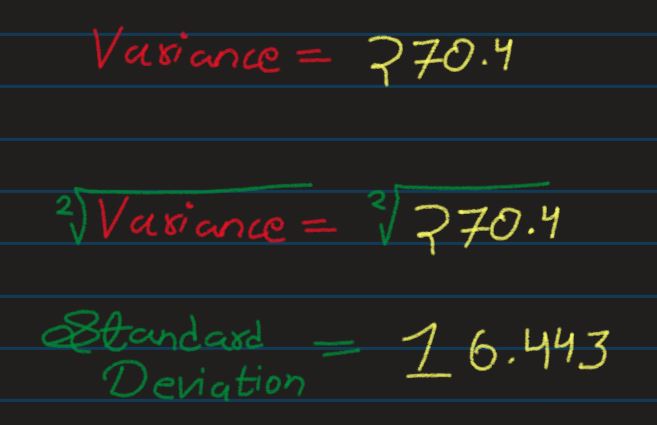 Variance = 270.4
²√Variance = ²√270.4
Standard Deviation = 16.443